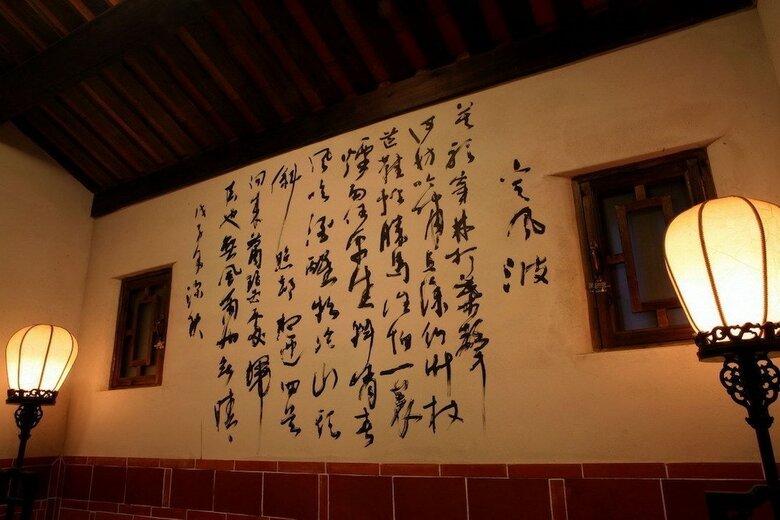 定風波
莫聽穿林打葉聲
何妨吟嘯且徐行竹杖
芒鞋輕勝馬誰怕一蓑
煙雨任平生料峭春
風吹酒醒微冷山頭
斜照卻相迎回首
向來蕭瑟處歸
去也無風雨也無晴
戊子年深秋